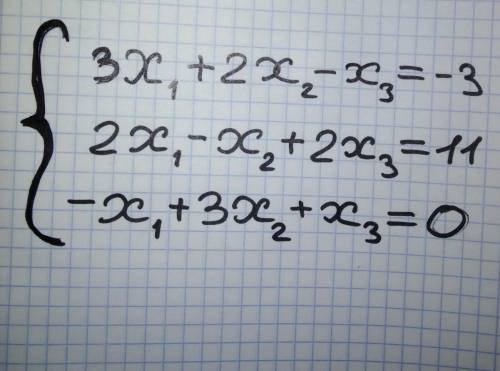 3x₁+2x₂-x₃=-3
2x₁-x₂+2x₃=11
-x₁+3x₂+x₃=0